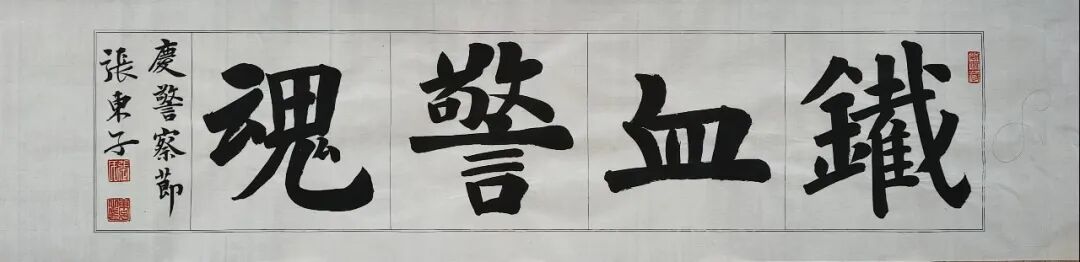 鐵血警魂
慶警察節
張東子